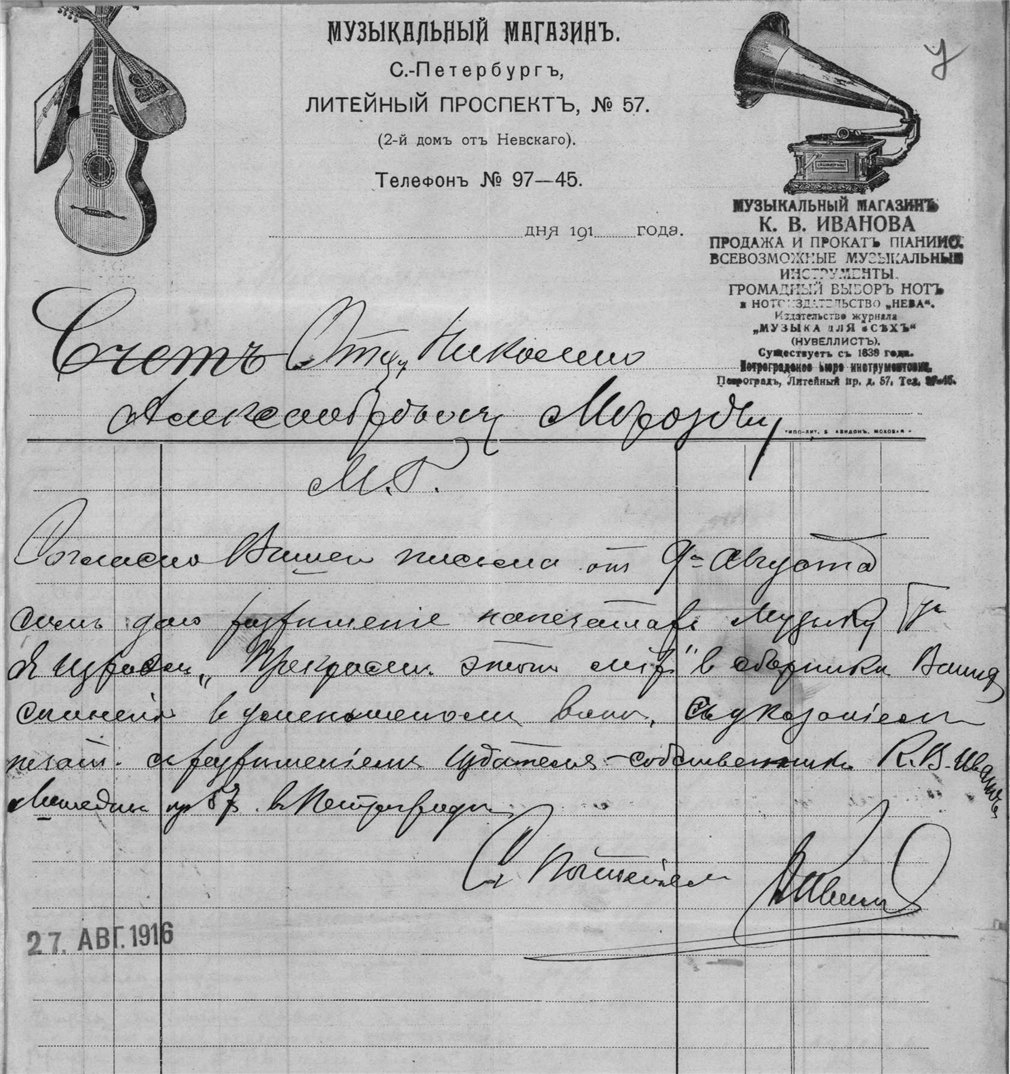 МУЗЫКАЛЬНЫЙ МАГАЗИНЪ.
С.-Петербургъ,
ЛИТЕЙНЫЙ ПРОСПЕКТЪ, № 57.
(2-й домъ отъ Невскаго).
Телефонъ № 97—45.
дня 191 года.
МУЗЫКАЛЬНЫЙ МАГАЗИНЪ
К. В. ИВАНОВА
ПРОДАЖА И ПРОКАТЪ ПІАНИНО.
ВСЕВОЗМОЖНЫЕ МУЗЫКАЛЬНЫЕ
ИНСТРУМЕНТЫ.
ГРОМАДНЫЙ ВЫБОРЪ НОТЪ
и НОТОИЗДАТЕЛЬСТВО „НЕВА".
Издательство журнала
„МУЗЫКА ДЛЯ ВСѢХЪ"
(НУВЕЛЛИСТЪ).
Существуетъ съ 1839 года.
Петроградское бюро инструментовъ.
Петроградъ, Литейный пр. д. 57. Тел. 97-45.
Счетъ Отцу Николаю
Александровичу Морозову
М. Г.
Согласно Вашего письма от 9го Августа
симъ даю разрѣшеніе напечатать музыку
„Прекрасен этот мір" в сборника
в уменьшеном видѣ, съ указаніем
с разрѣшенія издателя-собственника К. В. Иванов
Литейный пр 57. в Петроградѣ
С почтеніем
27. АВГ. 1916